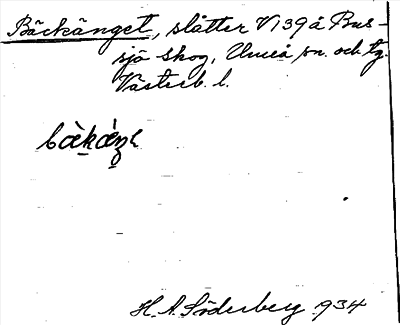 Bäckänget, slåtter V139 å Bus-
sjö skog, Umeå sn. och tg.
Västerb. l.
H. A. Söderberg 1934